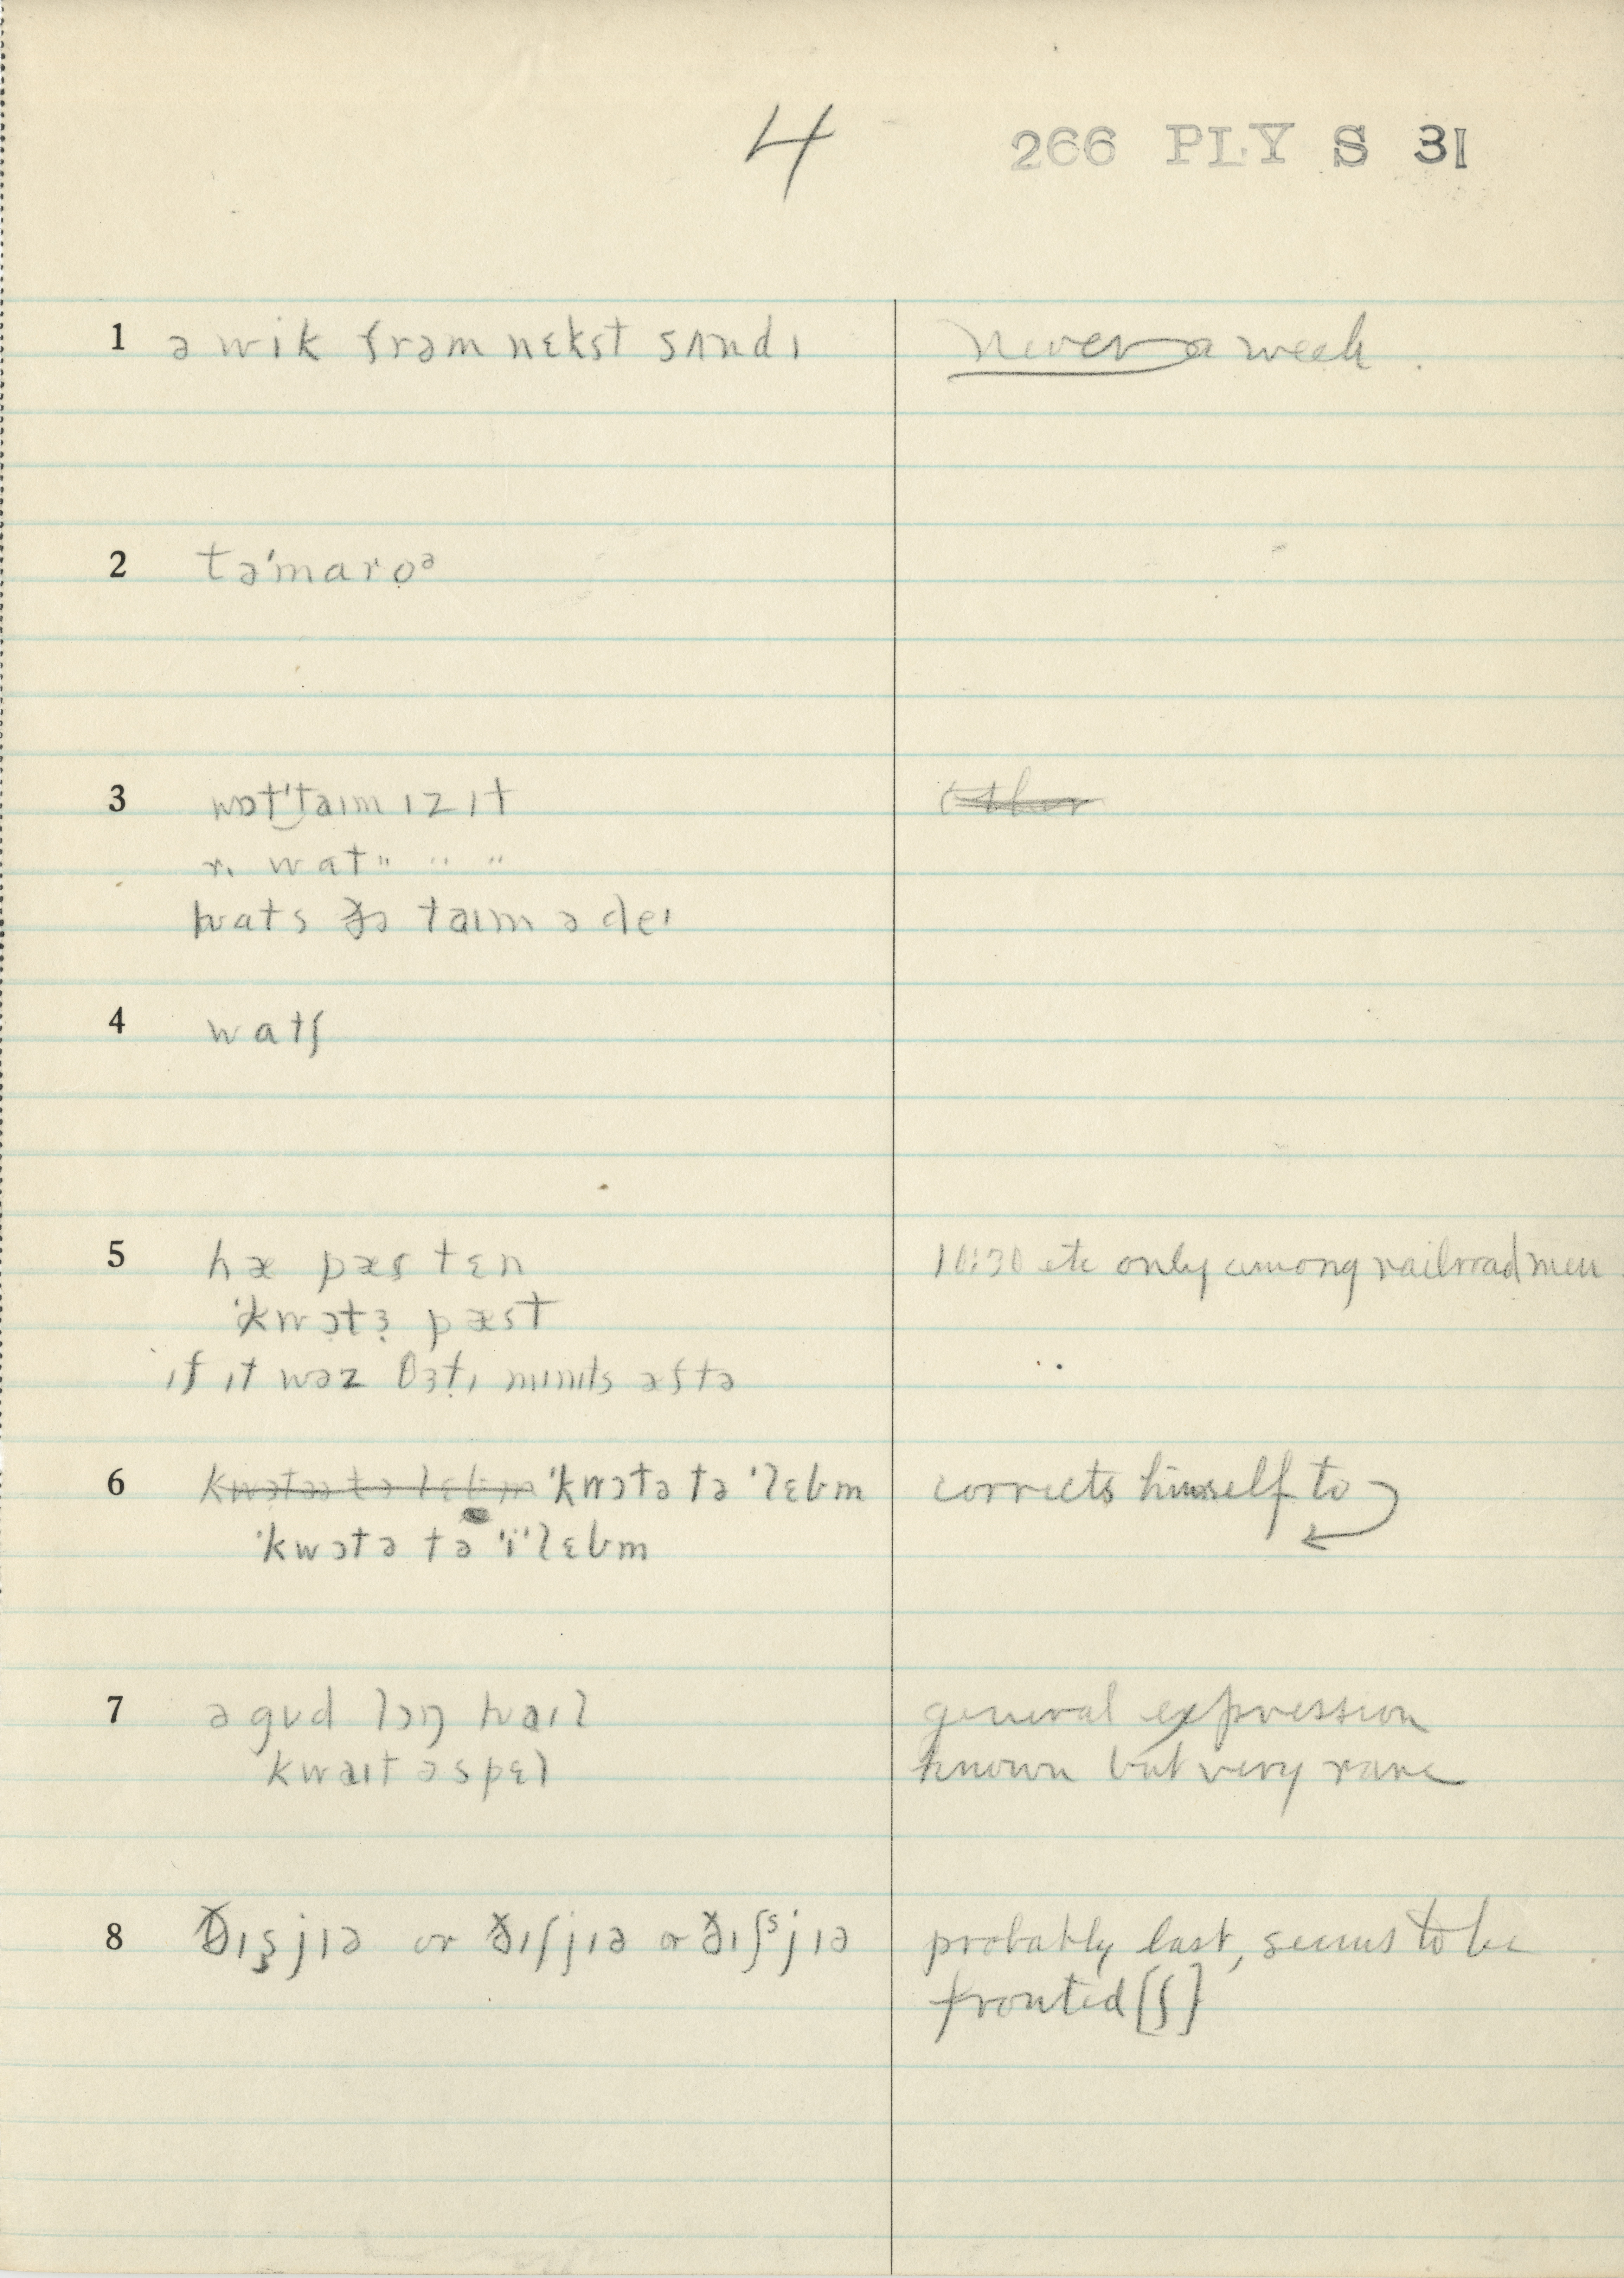 4 266 PLY S 31
1 ə wik frəm nɛkst sʌndɪ never a week.
2 tə'maro̞ᵊ
3 wɒt'taɪm ɪz ɪt
r. wat " " "
ʍats ðə taɪm ə deɪ
4 watʃ
5 hæ pæs tɛn 10:30 etc only among railroad men
'kwɔtɜ pæst
ɪf ɪt wəz θɜt̬ɪ mɪnɪts æftə
6 'kwɔtə tə 'lɛbm corrects himself to
'kwɔtə tə 'ï'lɛbm
7 ə gʊd lɔŋ ʍaɪl general expression
kwaɪt ə spɛl known but very rare
8 ðɪş jɪə or ðɪʃjɪə or ðɪʃˢjɪə probably last, seems to be
fronted [ʃ]